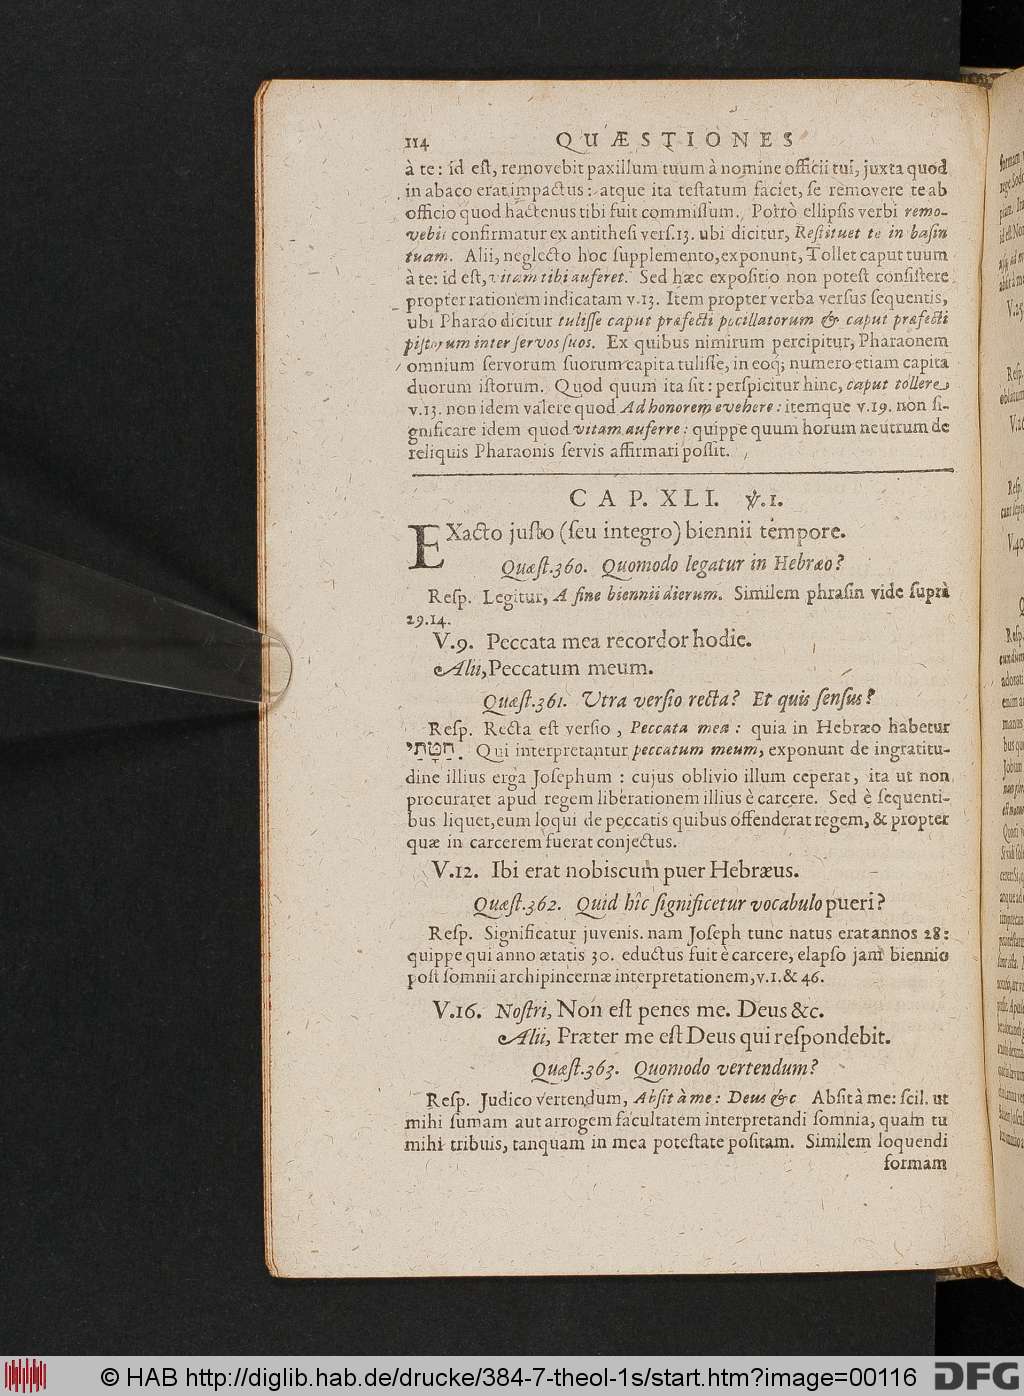 114 QUÆSTIONES
à te: id est, removebit paxillum tuum à nomine officii tui, juxta quod
in abaco erat impactus: atque ita testatum faciet, se removere te ab
officio quod hactenus tibi fuit commissum. Porrò ellipsis verbi remo-
vebit confirmatur ex antithesi vers. 13. ubi dicitur, Restituet te in basin
tuam. Alii, neglecto hoc supplemento, exponunt, Tollet caput tuum
à te: id est, vitam tibi auferet. Sed hæc expositio non potest consistere
propter rationem indicatam v. 13. Item propter verba versus sequentis,
ubi Pharao dicitur tulisse caput præfecti pocillatorum & caput præfecti
pistorum inter servos suos. Ex quibus nimirum percipitur, Pharaonem
omnium servorum suorum capita tulisse, in eoq; numero etiam capita
duorum istorum. Quod quum ita sit: perspicitur hinc, caput tollere
v. 13. non idem valere quod Ad honorem evehere: itemque v. 19. non si-
gnificare idem quod vitam auferre: quippe quum horum neutrum de
reliquis Pharaonis servis affirmari possit.
CAP. XLI. ℣. 1.
EXacto justo (seu integro) biennii tempore.
Quæst. 360. Quomodo legatur in Hebræo?
Resp. Legitur, A fine biennii dierum. Similem phrasin vide suprà
29. 14.
V. 9. Peccata mea recordor hodie.
Alii, Peccatum meum.
Quæst. 361. Utra versio recta? Et quis sensus?
Resp. Recta est versio, Peccata mea: quia in Hebræo habetur
חַטָּתַי. Qui interpretantur peccatum meum, exponunt de ingratitu-
dine illius erga Josephum: cujus oblivio illum ceperat, ita ut non
procuraret apud regem liberationem illius è carcere. Sed è sequenti-
bus liquet, eum loqui de peccatis quibus offenderat regem, & propter
quæ in carcerem fuerat conjectus.
V. 12. Ibi erat nobiscum puer Hebræus.
Quæst. 362. Quid hîc significetur vocabulo pueri?
Resp. Significatur juvenis. nam Joseph tunc natus erat annos 28:
quippe qui anno ætatis 30. eductus fuit è carcere, elapso jam biennio
post somnii archipincernæ interpretationem, v. 1. & 46.
V. 16. Nostri, Non est penes me. Deus &c.
Alii, Præter me est Deus qui respondebit.
Quæst. 363. Quomodo vertendum?
Resp. Judico vertendum, Absit à me: Deus &c Absit à me: scil. ut
mihi sumam aut arrogem facultatem interpretandi somnia, quam tu
mihi tribuis, tanquam in mea potestate positam. Similem loquendi
formam
© HAB http://diglib.hab.de/drucke/384-7-theol-1s/start.htm?image=00116
DFG